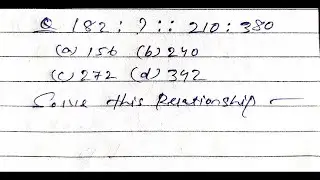 Q 182 : ? :: 210 : 380
(a) 156 (b) 240
(c) 272 (d) 342
Solve this Relationship –